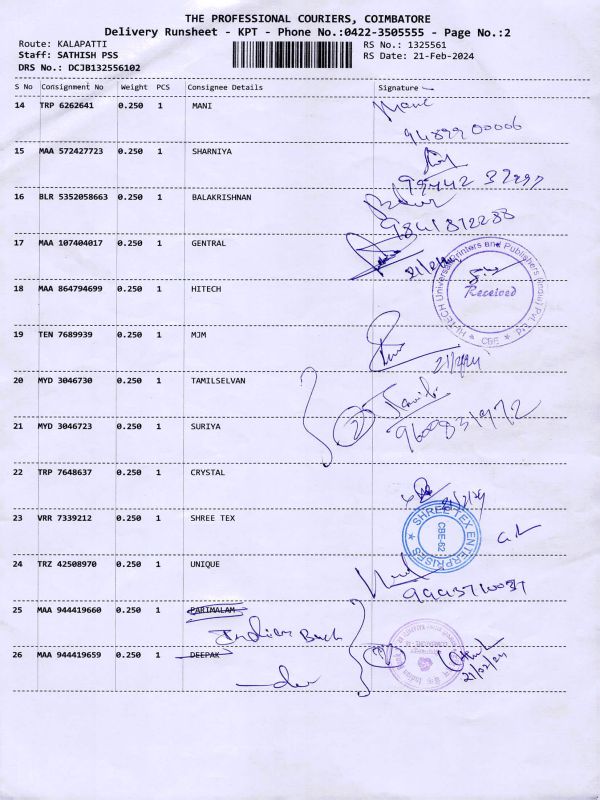 THE PROFESSIONAL COURIERS, COIMBATORE
Delivery Runsheet - KPT - Phone No.:0422-3505555 - Page No.:2
Route: KALAPATTI RS No.: 1325561
Staff: SATHISH PSS RS Date: 21-Feb-2024
DRS No.: DCJB132556102
S No Consignment No Weight PCS Consignee Details Signature
14 TRP 6262641 0.250 1 MANI Mani
15 MAA 572427723 0.250 1 SHARNIYA
16 BLR 5352058663 0.250 1 BALAKRISHNAN
9841872288
17 MAA 107404017 0.250 1 GENTRAL
18 MAA 864794699 0.250 1 HITECH Received
CBE
19 TEN 7689939 0.250 1 MJM
21/2/24
20 MYD 3046730 0.250 1 TAMILSELVAN
2
21 MYD 3046723 0.250 1 SURIYA 9609831972
22 TRP 7648637 0.250 1 CRYSTAL
21/2/24
23 VRR 7339212 0.250 1 SHREE TEX SHREE TEX ENTERPRISES CBE-62
24 TRZ 42508970 0.250 1 UNIQUE
25 MAA 944419660 0.250 1 PARIMALAM
Indian Bank
26 MAA 944419659 0.250 1 DEEPAK
21/02/24